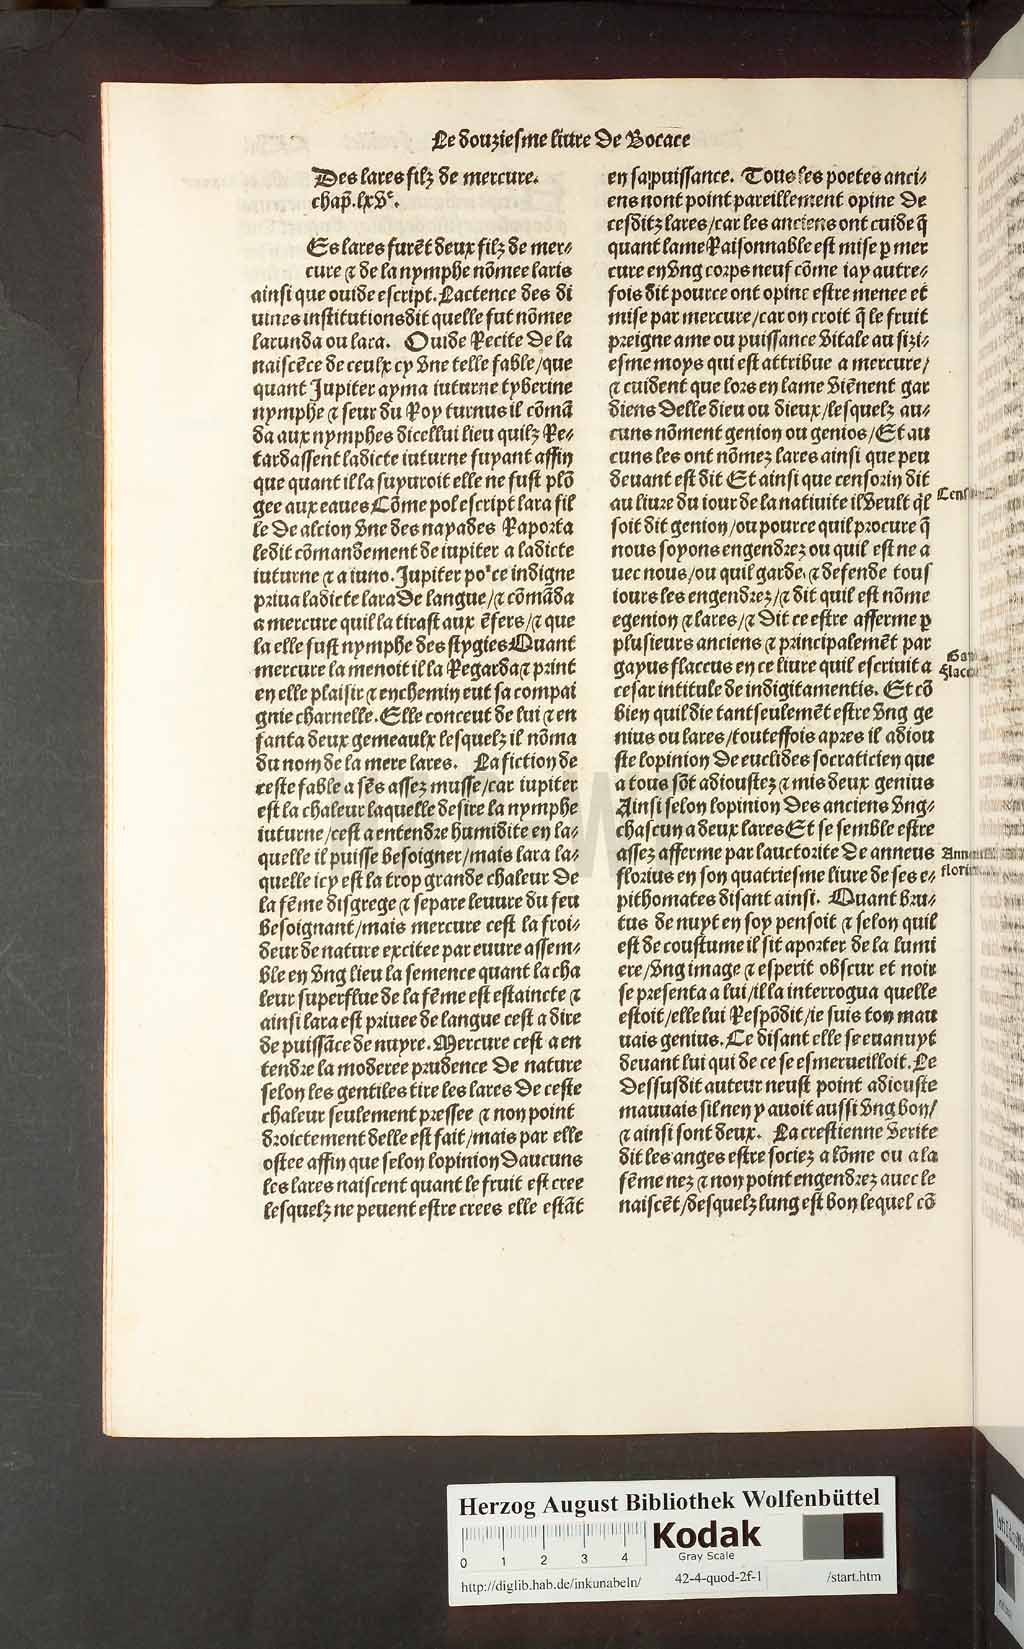 Le douziesme liure de Bocace
Des lares filz de mercure.
chap̃. lxvͤ.
Es lares furẽt deux filz de mer⸗
cure ⁊ de la nymphe nõmee laris
ainsi que ouide escript. Lactence des di
uines institutions dit quelle fut nõmee
larunda ou lara. Ouide Recite de la
naiscẽce de ceulx cy vne telle fable/que
quant Jupiter ayma iuturne tyberine
nymphe ⁊ seur du Roy turnus il cõmã
da aux nymphes dicellui lieu quilz Re⸗
tardassent ladicte iuturne fuyant affin
que quant il la suyuroit elle ne fust plõ
gee aux eaues Cõme pol escript lara fil
le de alcion vne des nayades Raporta
ledit cõmandement de iupiter a ladicte
iuturne ⁊ a iuno. Jupiter poʳce indigne
priua ladicte lara de langue/⁊ cõmãda
a mercure quil la tirast aux ẽfers/⁊ que
la elle fust nymphe des stygies Quant
mercure la menoit il la Regarda ⁊ print
en elle plaisir ⁊ en chemin eut sa compai
gnie charnelle. Elle conceut de lui ⁊ en
fanta deux gemeaulx lesquelz il nõma
du nom de la mere lares. La fiction de
ceste fable a sẽs assez musse/car iupiter
est la chaleur laquelle desire la nymphe
iuturne/cest a entendre humidite en la⸗
quelle il puisse besoigner/mais lara la⸗
quelle icy est la trop grande chaleur de
la fẽme disgrege ⁊ separe leuure du feu
besoignant/mais mercure cest la froi⸗
deur de nature excitee par euure assem⸗
ble en vng lieu la semence quant la cha
leur superflue de la fẽme est estaincte ⁊
ainsi lara est priuee de langue cest a dire
de puissãce de nuyre. Mercure cest a en
tendre la moderee prudence de nature
selon les gentiles tire les lares de ceste
chaleur seulement pressee ⁊ non point
droictement delle est fait/mais par elle
ostee affin que selon lopinion daucuns
les lares naiscent quant le fruit est cree
lesquelz ne peuent estre crees elle estãt
en sa puissance. Tous les poetes anci⸗
ens nont point pareillement opine de
cesditz lares/car les anciens ont cuide q̃
quant lame Raisonnable est mise p mer
cure en vng corps neuf cõme iay autre⸗
fois dit pource ont opine estre menee et
mise par mercure/car on croit q̃ le fruit
preigne ame ou puissance vitale au sizi⸗
esme moys qui est attribue a mercure/
⁊ cuident que lors en lame viẽnent gar
diens delle dieu ou dieux/lesquelz au⸗
cuns nõment genion ou genios/Et au
cuns les ont nõmez lares ainsi que peu
deuant est dit Et ainsi que censorin dit
au liure du iour de la natiuite il veult q̃l
soit dit genion/ou pource quil procure q̃
nous soyons engendrez ou quil est ne a
uec nous/ou quil garde ⁊ defende tous
iours les engendrez/⁊ dit quil est nõme
egenion ⁊ lares/⁊ dit ce estre afferme p
plusieurs anciens ⁊ principalemẽt par
gayus flaccus en ce liure quil escriuit a
cesar intitule de indigitamentis. Et cõ
bien quil die tantseulemẽt estre vng ge
nius ou lares/touteffois apres il adiou
ste lopinion de euclides socraticien que
a tous sõt adioustez ⁊ mis deux genius
Ainsi selon lopinion des anciens vng⸗
chascun a deux lares Et se semble estre
assez afferme par lauctorite de anneus
florius en son quatriesme liure de ses e⸗
pithomates disant ainsi. Quant bru⸗
tus de nuyt en soy pensoit ⁊ selon quil
est de coustume il fit aporter de la lumi
ere/vng image ⁊ esperit obscur et noir
se presenta a lui/il la interrogua quelle
estoit/elle lui Respõdit/ie suis ton mau
uais genius. Ce disant elle se euanuyt
deuant lui qui de ce se esmerueilloit. Le
dessusdit auteur neust point adiouste
mauuais sil nen y auoit aussi vng bon/
⁊ ainsi sont deux. La crestienne verite
dit les anges estre sociez a lõme ou a la
fẽme nez ⁊ non point engendrez auec le
naiscẽt/desquelz lung est bon lequel cõ
Herzog August Bibliothek Wolfenbüttel
0 1 2 3 4
Kodak
Gray Scale
http://diglib.hab.de/inkunabeln/ 42-4-quod-2f-1 /start.htm